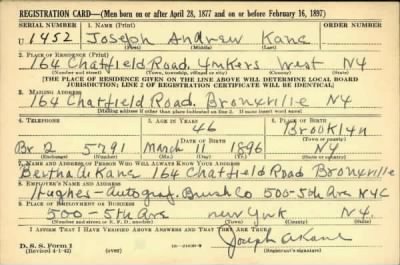 REGISTRATION CARD—(Men born on or after April 28, 1877 and on or before February 16, 1897)
SERIAL NUMBER 1. NAME (Print)
U 1452 Joseph Andrew Kane
(First) (Middle) (Last)
2. PLACE OF RESIDENCE (Print)
164 Chatfield Road Yonkers West NY
(Number and street) (Town, township, village, or city) (County) (State)
[THE PLACE OF RESIDENCE GIVEN ON THE LINE ABOVE WILL DETERMINE LOCAL BOARD
JURISDICTION; LINE 2 OF REGISTRATION CERTIFICATE WILL BE IDENTICAL]
3. MAILING ADDRESS
164 Chatfield Road. Bronxville NY
[Mailing address if other than place indicated on line 2. If same insert word same]
4. TELEPHONE 5. AGE IN YEARS 6. PLACE OF BIRTH
46 Brooklyn
DATE OF BIRTH (Town or county)
Br 2 5791 March 11 1896 NY
(Exchange) (Number) (Mo.) (Day) (Yr.) (State or country)
7. NAME AND ADDRESS OF PERSON WHO WILL ALWAYS KNOW YOUR ADDRESS
Bertha A. Kane 164 Chatfield Road Bronxville
8. EMPLOYER'S NAME AND ADDRESS
Hughes-Autograf Brush Co 500-5th Ave NYC
9. PLACE OF EMPLOYMENT OR BUSINESS
500-5th Ave New York NY.
(Number and street or R. F. D. number) (Town) (County) (State)
I AFFIRM THAT I HAVE VERIFIED ABOVE ANSWERS AND THAT THEY ARE TRUE.
D. S. S. Form 1
(Revised 4-1-42)
Joseph A Kane
(Registrant's signature)